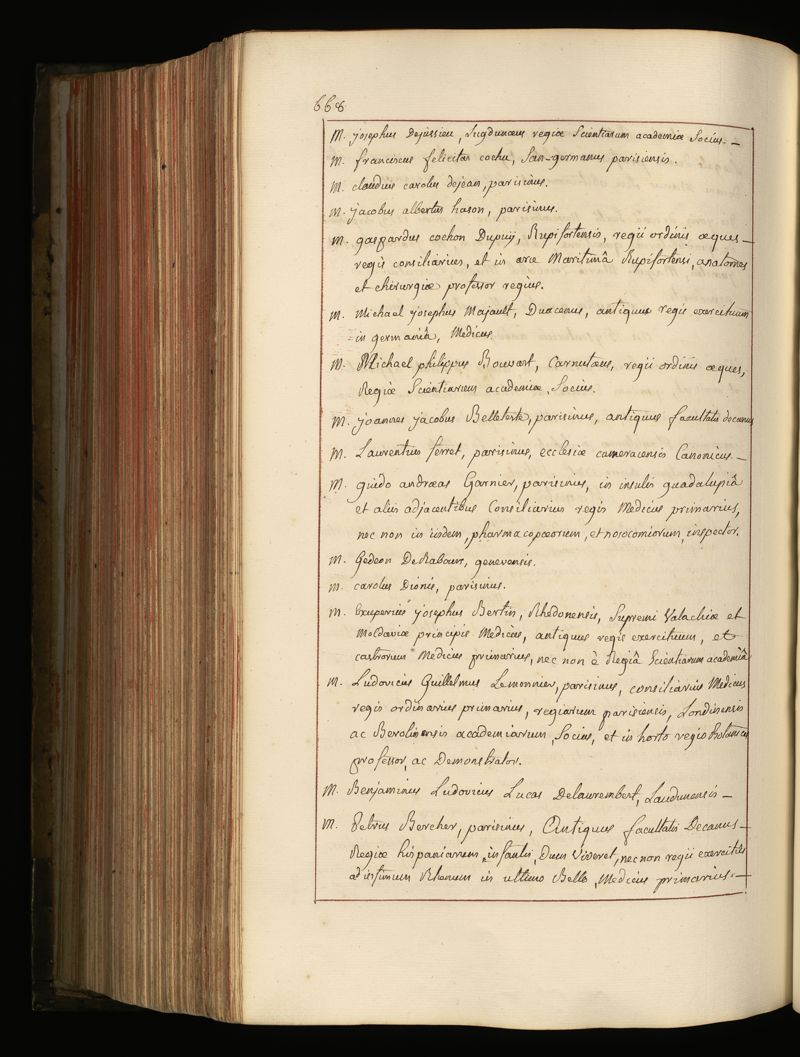 668
M. josephus Dejussieu, Lugdunæus regiæ Scientiarum academiæ Socius. –
M. franciscus felicitas cochu, San-germanus parisiensis.
M. claudius carolus dejean, parisinus.
M. jacobus albertus hason, parisinus.
M. gaspardus cochon Dupuij, Rupifortensis, regii ordinis æques –
regis consiliarius, et in arce Maritimâ Rupifortensi, anatomes
et chirurgiæ professor regius.
M. Michael josephus Majault, Duacenus, antiquus regis exercituum
= in germaniâ, Medicus.
M. Michael philippus Bouvart, Carnutæus, regii ordinis æques,
Regiæ Scientiarum academiæ, Socius.
M. joannes jacobus Belleteste, parisinus, antiquus facultatis decanus
M. Laurentius ferret, parisinus, ecclesiæ cameracensis Canonicus. –
M. guido andræas Garnier, parisinus, in insulis guadalupiâ
et aliis adjacentibus Consiliarius regis Medicus primarius,
nec non in iisdem, pharmacopœorum, et nosocomiorum, inspector.
M. Gedeon DeRabours, genevensis.
M. carolus Dionis, parisinus.
M. Exuperius josephus Bertin, Rhedonensis, Supremi Valachiæ et
Moldaviæ principis Medicus, antiquus regis exercituum, et
castrorum Medicus primarius, nec non è Regiâ Scientiarum academiâ
M. Ludovicus Guillelmus Lemonnier, parisinus, consiliarius Medicus
regis ordinarius primarius, regiarum parisiensis, Londinensis
ac Berolinensis academiarum, Socius, et in horto regio Botanices
professor, ac Demonstrator.
M. Benjaminus Ludovicus Lucas Delaurembert, Laudunensis –
M. Petrus Bercher, parisinus, Antiquus facultatis Decanus –
Regiæ hispaniarum infantis, Ducis Viveret, nec non regii exercitûs
ad infimum Rhenum in ultimo Bello, Medicus primarius. –